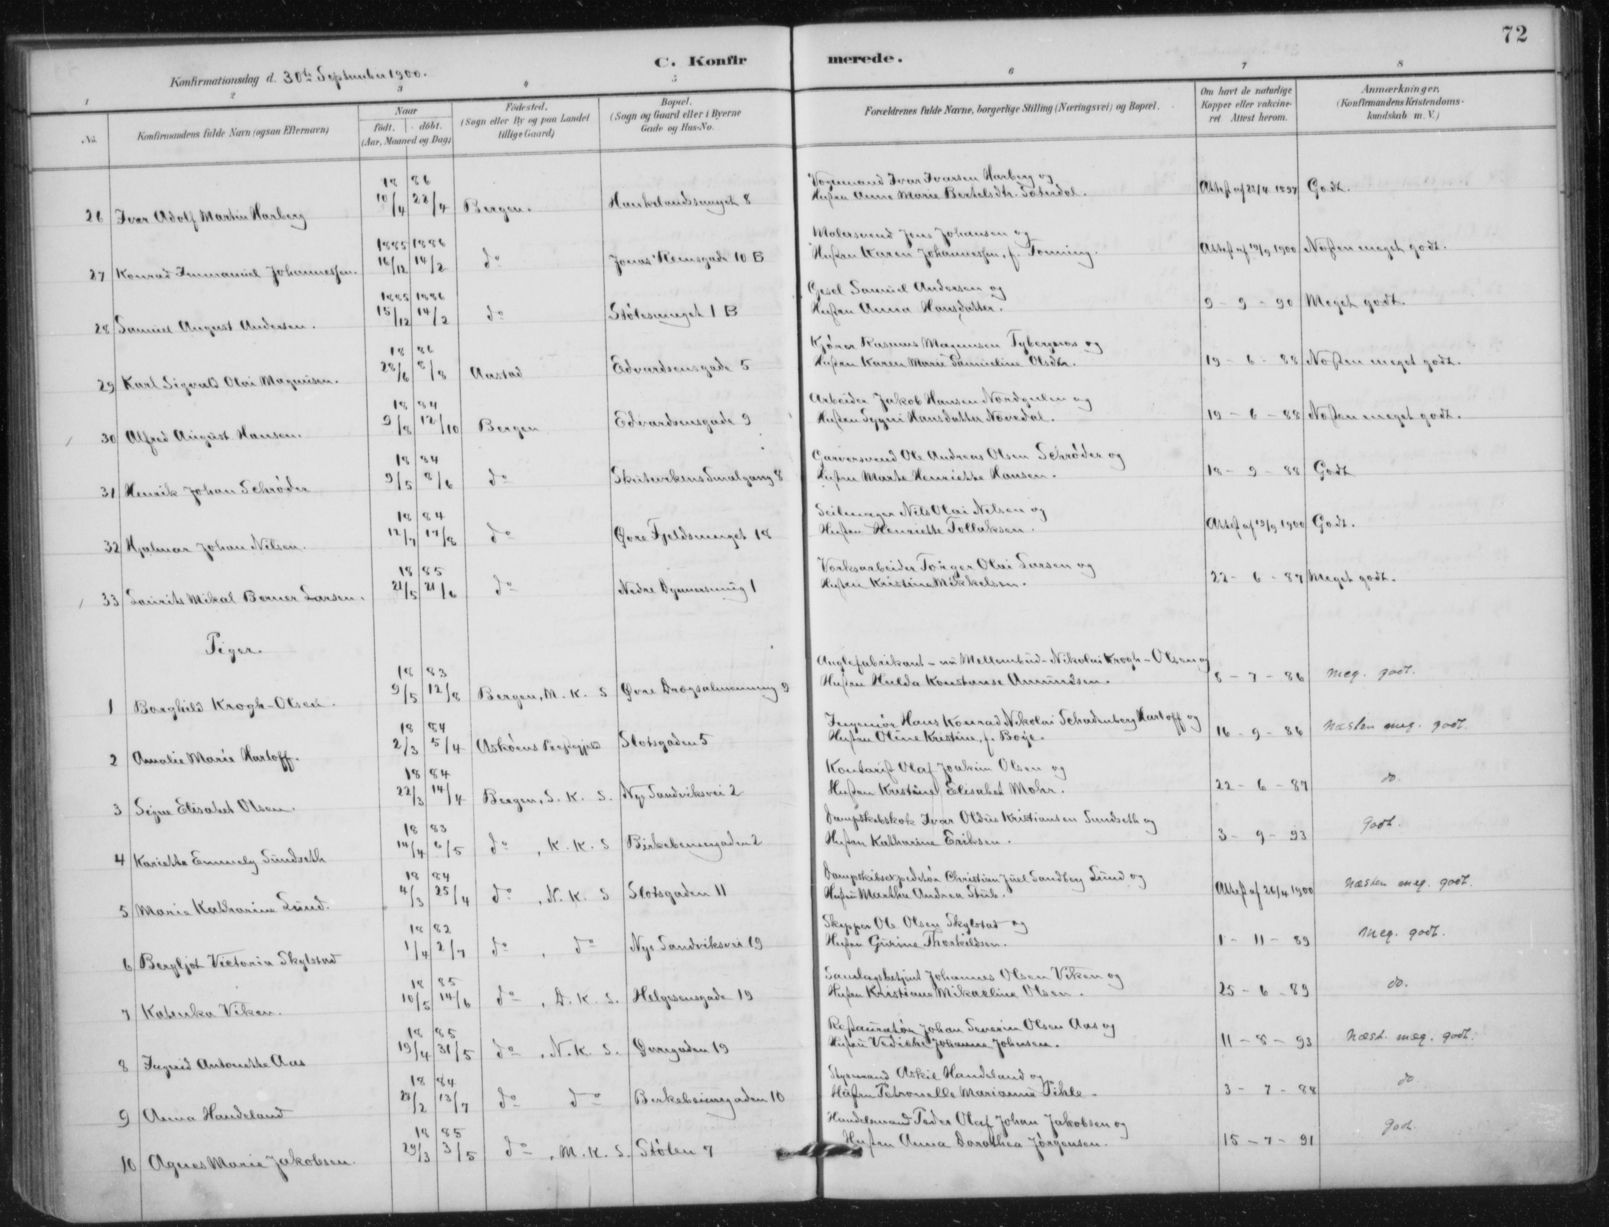 72
C. Konfirmerede.
Konfirmationsdag d. 30te September 1900.
1 2 3 4 5 6 7 8
No.
Konfirmandens fulde Navn (ogsaa Efternavn)
Naar
født. døbt.
(Aar, Maaned og Dag)
Fødested.
(Sogn eller By og paa Landet
tillige Gaard)
Bopæl.
(Sogn og Gaard eller i Byerne
Gade og Hus-No.
Forældrenes fulde Navne, borgerlige Stilling (Næringsvei) og Bopæl.
Om havt de naturlige
Kopper eller vakcine-
ret Attest herom.
Anmærkninger.
(Konfirmandens Kristendoms-
kundskab m. V.)
26 Ivar Adolf Martin Harberg 1886 10/4 22/4 Bergen. Haukelandssmuget 8
Vognmand Ivar Ivarsen Harberg og
Hustru Anne Marie Bertelsdtr. Sæterdal. Attest af 22/4 1897 Godt.
27 Konrad Immanuel Johannessen. 1885 16/12 1886 14/2 do Jonas Reinsgade 10 B
Malersvend Jens Johansen og
Hustru Karen Johannessen, f. Tonning. Attest af 19/9 1900 Næsten meget godt.
28 Samuel August Andersen. 1885 15/12 1886 14/2 do Stølesmuget 1 B
Gesel Samuel Andersen og
Hustru Anna Hansdatter. 9 - 9 - 90 Meget godt.
29 Karl Sigvald Olai Magnussen. 1886 28/6 8/8 Aarstad Edvardsensgade 5
Kjører Rasmus Magnussen og
Hustru Karen Marie Olsdtr. 19 - 6 - 88 Næsten meget godt.
30 Alfred August Hansen. 1884 9/8 12/10 Bergen Edvardsensgade 9
Arbeider Jakob Hansen Nordgulen og
Hustru Sygni Hansdatter Nøvedal. 19 - 6 - 88 Næsten meget godt.
31 Henrik Johan Schrøder 1884 9/5 8/6 do Skutevikens Smalgang 8
Garversvend Ole Andreas Olsen Schrøder og
Hustru Marte Henriette Hansen. 18 - 9 - 88 Godt
32 Hjalmar Johan Nilsen. 1884 12/7 17/8 do Øvre Fjeldsmuget 18
Seilmager Nils Olai Nilsen og
Hustru Henriette Tollaksen. Attest af 19/9 1900 Godt.
33 Laurits Mikal Berner Larsen. 1885 21/5 21/6 do Nedre 1
Verksarbeider Torger Olai Larsen og
Hustru Kristine Mikkelsen. 22 - 6 - 87 Meget godt.
Piger.
1 Borghild Krogh-Olsen. 1883 9/5 12/8 Bergen, M. K. S Øvre Dregsalmenning 9
Nikolai Krogh-Olsen og
Hustru Hulda Konstanse Amundsen. 8 - 7 - 86 meg. godt.
2 Amalie Marie Hartoff. 1884 2/3 5/4 Askøens Præstegjeld Slotsgaden 5
Ingeniør Hans Konrad Nikolai Schadenberg Hartoff og
Hustru Oline Kristine, f. Boye. 16 - 9 - 86 næsten meg. godt
3 Signe Elisabet Olsen. 1884 22/3 14/4 Bergen, S. K. S. Nye Sandviksvei 2
Kontorist Olaf Joakim Olsen og
Hustru Kristine Elisabet Mohr. 22 - 6 - 87 do.
4 Kariethe Emmely Sundseth 1883 14/4 6/5 do, K. K. S Birkebeinergaden 2
Dampskibskok Ivar Oldus Kristiansen Sundseth og
Hustru Katharine Eriksen. 3 - 9 - 93 godt.
5 Marie Katharine Lund. 1884 4/3 25/4 do, N. K. S Slotsgaden 11
Dampskibsexpeditør Christian Juel Sandberg Lund og
Hustru Martha Andrea Stub. Attest af 26/4 1900 næsten meg. godt.
6 Bergljot Victoria Skylstad 1882 1/4 2/7 do, do Nye Sandviksvei 19
Skipper Ole Olsen Skylstad og
Hustru Gurine Thorkildsen. 1 - 11 - 89 meg. godt.
7 Katinka Viken. 1885 10/5 14/6 do, D. K. S. Helgesensgade 19
Johannes Olsen Viken og
Hustru Kristiane Mikaeline Olsen. 25 - 6 - 89 do.
8 Ingrid Antonette Aas 1885 19/4 31/5 do, N. K. S. Øvregaden 19
Restauratør Johan Severin Olsen Aas og
Hustru Vedikke Johanne Johnsen. 11 - 8 - 93 næst. meg. godt.
9 Anna Handeland 1884 23/2 13/7 do do Birkebeinergaden 10
Styrmand Askil Handeland og
Hustru Petronelle Marianne Pihle. 3 - 7 - 88 do
10 Agnes Marie Jakobsen. 1885 29/3 3/5 do, M. K. S. Stølen 7
Handelsmand Peder Olaf Johan Jakobsen og
Hustru Anna Dorothea Jørgensen. 15 - 7 - 91 godt.